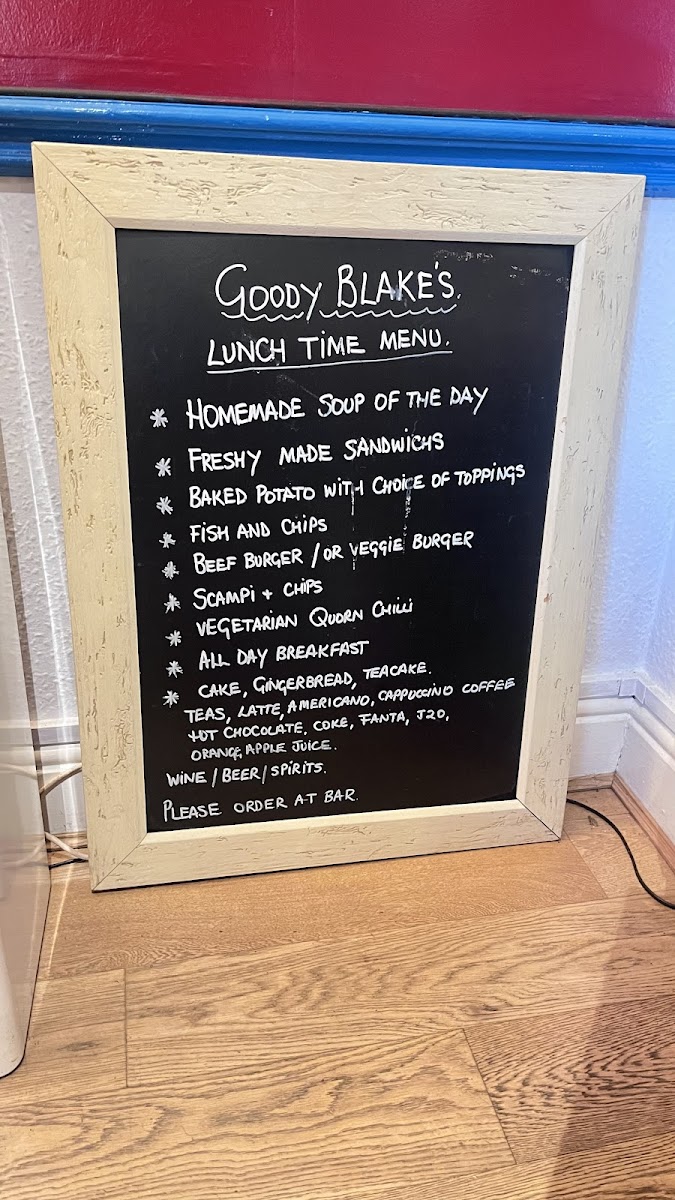 GOODY BLAKE'S.
LUNCH TIME MENU.
* HOMEMADE SOUP OF THE DAY
* FRESHY MADE SANDWICHS
* BAKED POTATO WITH CHOICE OF TOPPINGS
* FISH AND CHIPS
* BEEF BURGER / OR VEGGIE BURGER
* SCAMPI + CHIPS
* VEGETARIAN QUORN CHILLI
* ALL DAY BREAKFAST
* CAKE, GINGERBREAD, TEACAKE.
TEAS, LATTE, AMERICANO, CAPPUCCINO COFFEE
HOT CHOCOLATE, COKE, FANTA, J20,
ORANGE, APPLE JUICE.
WINE / BEER / SPIRITS.
PLEASE ORDER AT BAR.